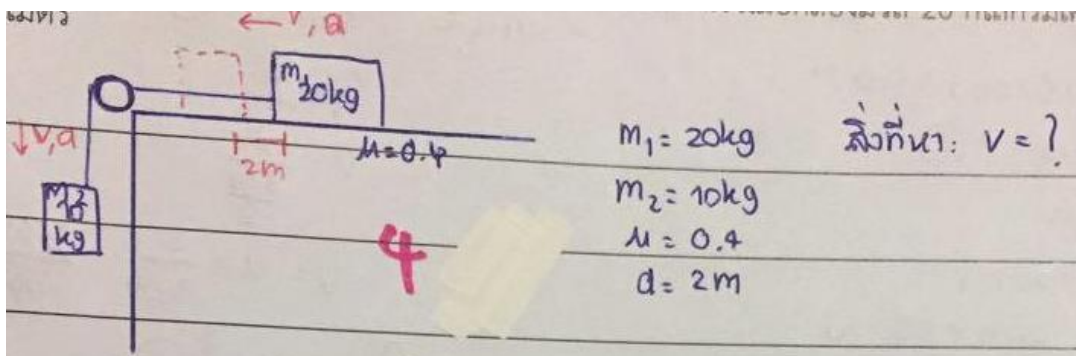 ← v, a
m 20kg
↓ v, a
2m
μ=0.4
m2 10 kg
4
m₁ = 20kg
สิ่งที่หา: v = ?
m₂ = 10kg
μ = 0.4
d = 2m